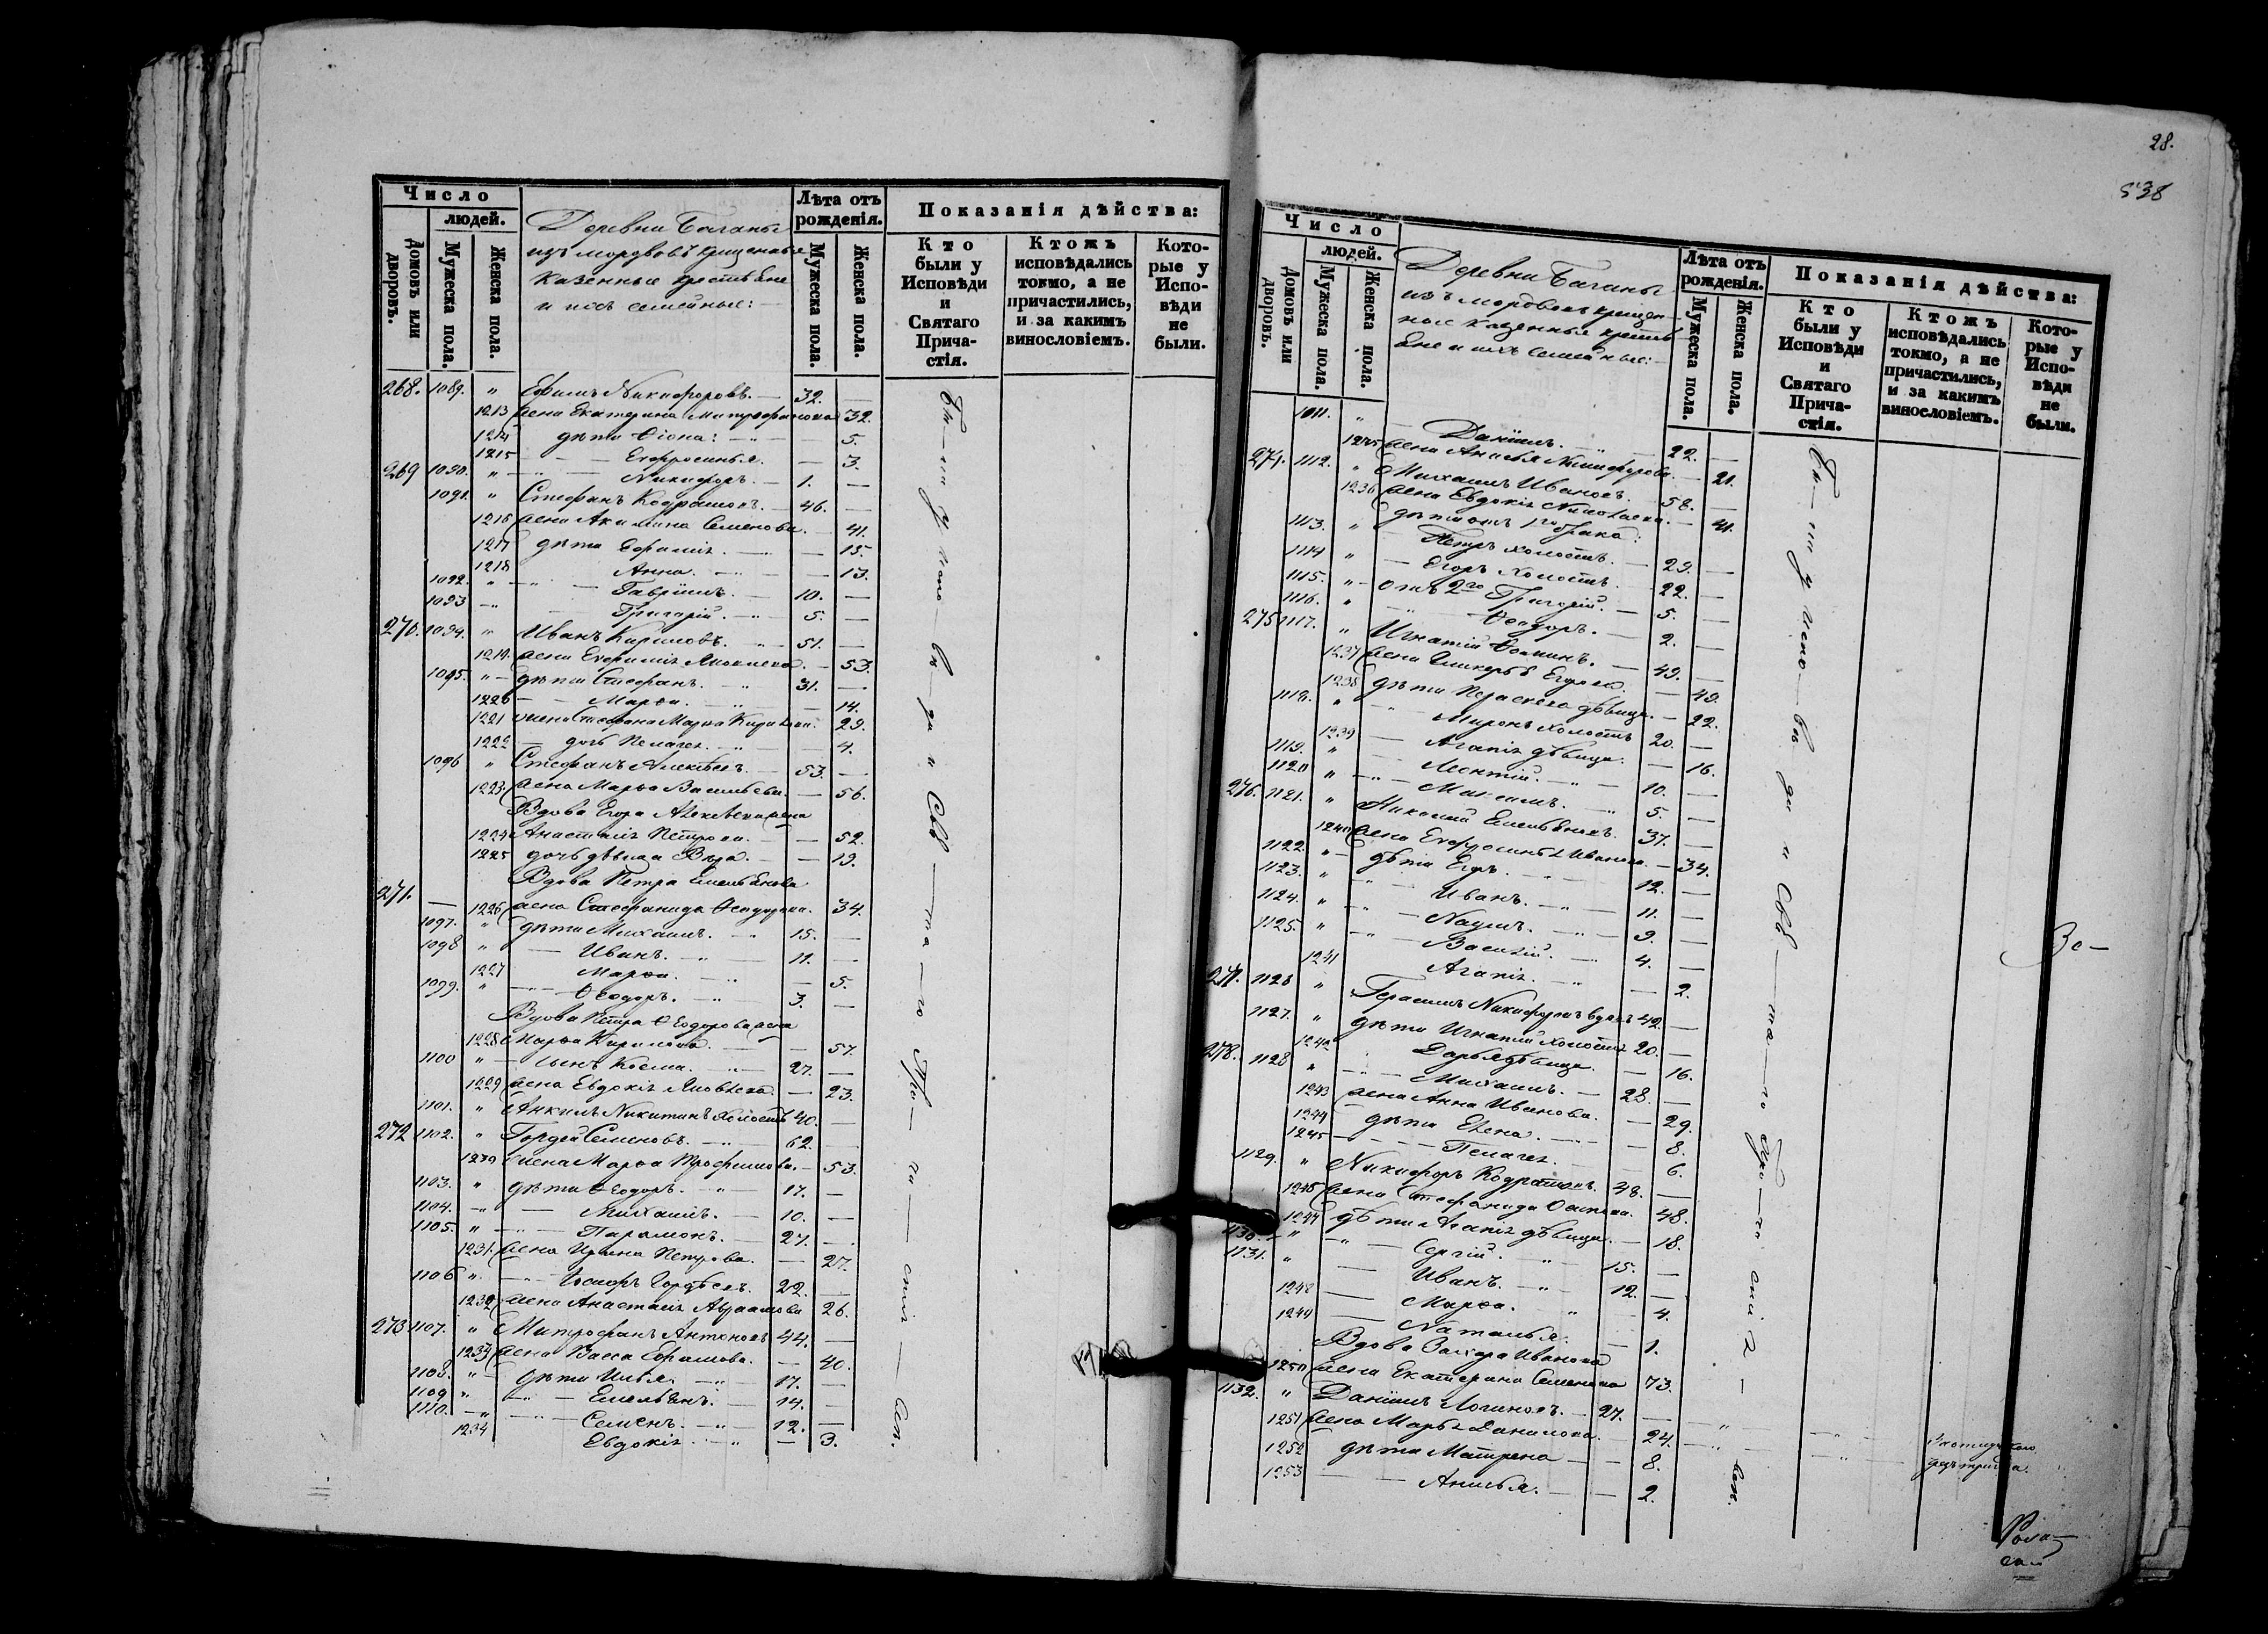 Число
людей.
Домовъ или дворовъ.
Мужеска пола.
Женска пола.
Деревни Баганы
изъ мордовъ крещеныя
казенные крестьяне
и ихъ семейные:
Лѣта отъ рожденія.
Мужеска пола.
Женска пола.
Показанія дѣйства:
Кто были у Исповѣди и Святаго Причастія.
Ктожъ исповѣдались токмо, а не причастились, и за какимъ винословіемъ.
Которые у Исповѣди не были.
268. 1089. " Ефимъ Никифоровъ. — 32. —
1213 жена Екатерина Митрофанова 32.
1214 дѣти Ѳіона: — 5.
1215 — Евфросинья. — 3.
269 1090. " — Никифоръ. — 1. —
1091. " Стефанъ Кодратовъ. — 46. —
1216 жена Акилина Семенова. — 41.
1217 дѣти Ефимія. — 15.
1218 Анна. — 13.
1092. " — Гавріилъ. — 10. —
1093 — Григорій. — 5. —
270. 1094. " Иванъ Кириловъ. 51. —
1219. жена Евфимія — 53.
1095. " — дѣти Стефанъ. 31. —
1220 — Марѳа. — 14.
1221 жена Стефана Марѳа 29.
1222 — дочь Пелагея. — 4.
1096 " Стефанъ Алексѣевъ. 53. —
1223. жена Марѳа Васильева. — 56.
Вдова Егора Алексѣева жена
1224 Анастасія Петрова. — 52.
1225 дочь дѣвица Вѣра. — 19.
Вдова Петра Емельянова
271. — 1226 жена Стефанида Ѳеодорова. 34.
1097. " дѣти Михаилъ. 15. —
1098 " — Иванъ. 11. —
1227 Марѳа. — 5.
1099. " — Ѳеодоръ. 3. —
Вдова Петра Ѳеодорова жена
1228 Марѳа Кирилова. — 57.
1100 " — сынъ Косма. 27. —
1229 жена Евдокія Яковлева. — 23.
1101. " Никитинъ холостъ 40. —
272 1102. " Гордей Семеновъ. 62. —
1230 жена Марѳа Трофимова. — 53.
1103. " дѣти Ѳеодоръ. 17. —
1104. — Михаилъ. 10. —
1105. " — Парамонъ. — 27. —
1231. жена Ирина Петрова. — 27.
1106 " — Іосифъ Гордѣевъ. 22. —
1232 жена Анастасія Авраамова 26.
273 1107. " Митрофанъ Антоновъ 44. —
1233 жена Васса Ефимова. — 40.
1108. " — дѣти Илья. 17. —
1109 " — Емельянъ. — 14. —
1110. — Семенъ. 12. —
1234 Евдокія. — 3.
28.
538
Число
людей.
Домовъ или дворовъ.
Мужеска пола.
Женска пола.
Деревни Баганы
изъ мордовъ крещен-
ные казенныя кресть
яне и ихъ семейные:
Лѣта отъ рожденія.
Мужеска пола.
Женска пола.
Показанія дѣйства:
Кто были у Исповѣди и Святаго Причастія.
Ктожъ исповѣдались токмо, а не причастились, и за какимъ винословіемъ.
Которые у Исповѣди не были.
1111. " Даніилъ. — 22. —
1235 жена Анисья Никифорова. — 21.
274. 1112. " Михаилъ Ивановъ. — 58. —
1236 жена Евдокія Николаева. — 41.
дѣти отъ 1го брака:
1113. " Петръ холостъ. — 29. —
1114 " — Егоръ холостъ. — 22. —
1115. " — отъ 2го Григорій. — 5. —
1116. " Ѳеодоръ. — 2. —
275 1117. " Игнатій Ѳоминъ. — 49. —
1237 жена Егорова. — 49.
1238 дѣти Параскева дѣвица. — 22.
1118. " — Миронъ холостъ 20. —
1239 — Агапія дѣвица. — 16.
1119. " — Леонтій. 10. —
1120 " — Максимъ. 5. —
276. 1121. " Николай Емельяновъ. 37. —
1240 жена Евфросинья Иванова. — 34.
1122. " — дѣти Егоръ. 12. —
1123. " — Иванъ. 11. —
1124. " — Наумъ. 9. —
1125. " — Василій. 4. —
1241 Агапія. — 2.
277. 1126 " Герасимъ Никифоровъ вдовъ 42. —
1127. " дѣти Игнатій холостъ 20. —
1242 Дарья дѣвица. — 16.
278. 1128 " — Михаилъ. — 28. —
1243 жена Анна Иванова. — 29.
1244 дѣти Елена. — 8.
1245 — Пелагея. 6.
1129. " Никифоръ Кодратовъ. 48. —
1246 жена Стефанида Осипова. 48.
1247 дѣти Агапія дѣвица. — 18.
1130. " — Сергій. 15. —
1131. " — Иванъ. 12. —
1248 — Марѳа. " — 4.
1249 — Наталья. — 1.
Вдова Захара Иванова
1250 жена Екатерина Семенова 73.
1132. " Даніилъ Логиновъ. — 27. —
1251 жена Марья Данилова. — 24.
1252 дѣти Матрена — 8.
1253 — Анисья. — 2.